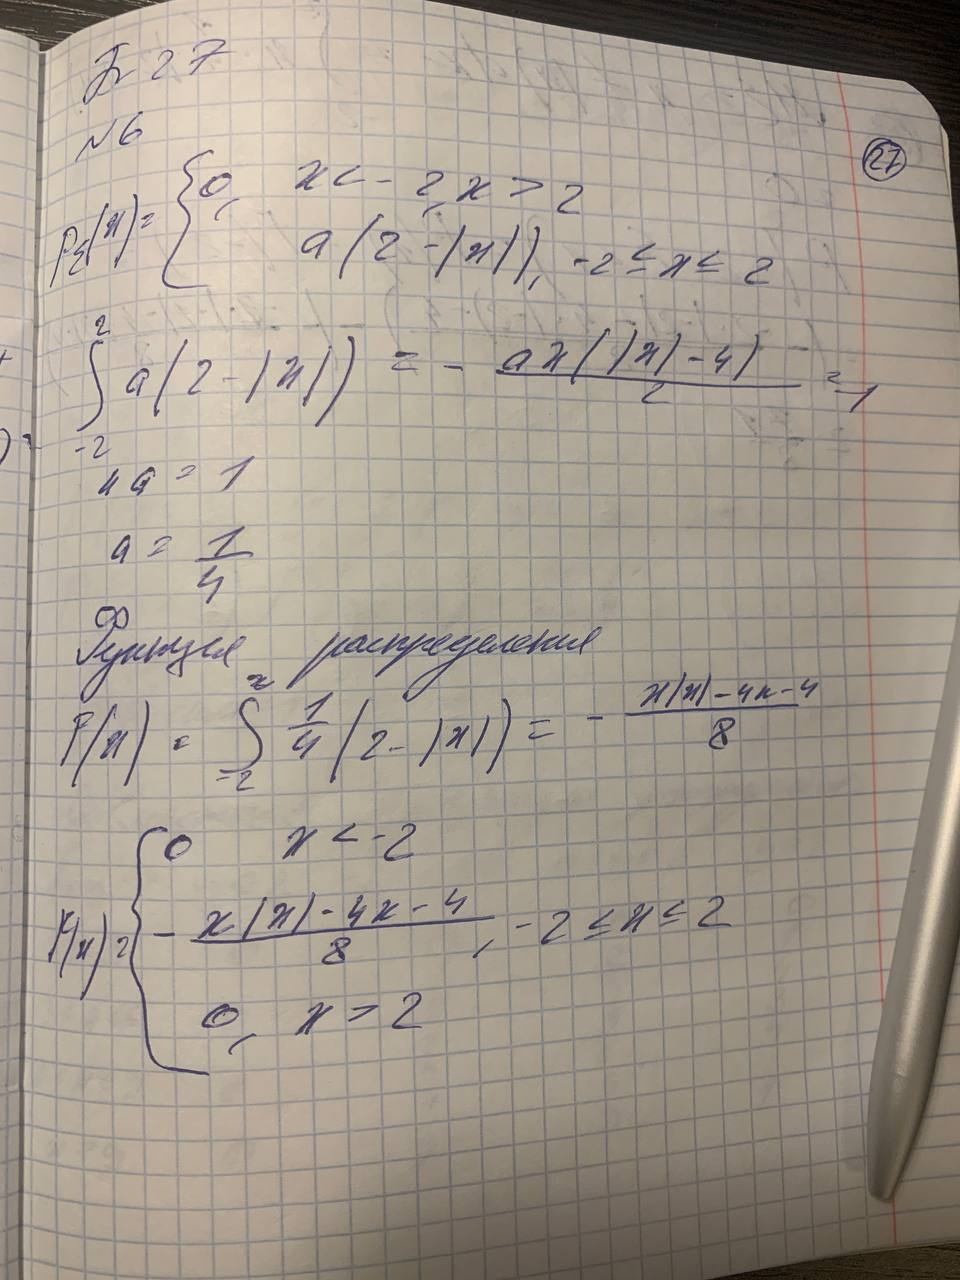 Б 27
№6
27
P_ξ(x) = { 0, x < -2, x > 2
a(2-|x|), -2 ≤ x ≤ 2
∫_{-2}^{2} a(2-|x|) = - \frac{ax(|x|-4)}{2} = 1
4a = 1
a = \frac{1}{4}
Функция распределения
F(x) = ∫_{-2}^{x} \frac{1}{4}(2-|x|) = - \frac{x|x|-4x-4}{8}
F(x) = { 0 x < -2
- \frac{x|x|-4x-4}{8}, -2 ≤ x ≤ 2
0, x > 2